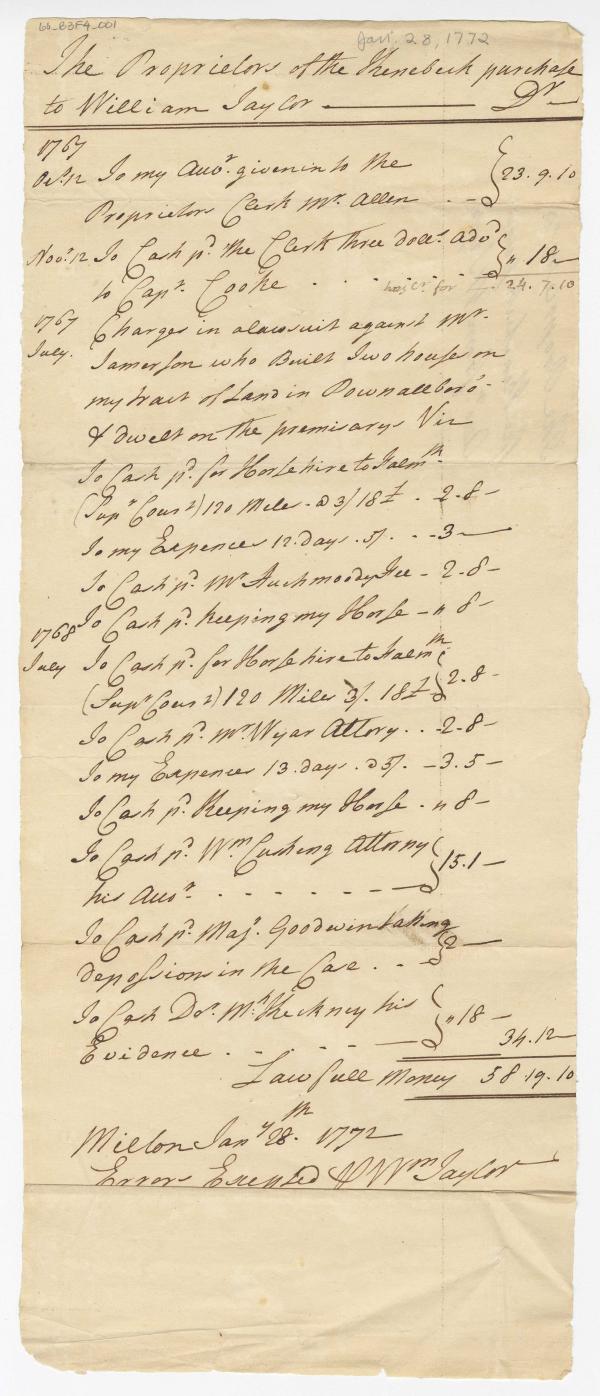 66_B3F4_001
Jan. 28, 1772
The Proprietors of the Kenebeck purchase
to William Taylor Dr
1767
Octr. 12 To my Accot. given in to the
Proprietors Clerk Mr. Allen 23.9.10
Novr. 12 To Cash pd. the Clerk three dolls. adv'd
to Capt. Cooke " 18
24.7.10
1767
July. Charges in a lawsuit against Mr.
Jamerson who Built Two houses on
my tract of Land in Pownallboro'
& dwelt on the premisarys Viz
To Cash pd. for Horse hire to Falmth
(Supr Court) 120 Miles @ 3/ 18 2.8
To my Expences 12 days 5/. 3
To Cash pd. Mr. Auchmoody Fee 2.8
To Cash pd. keeping my Horse " 8
1768
July To Cash pd. for Horse hire to Falmth
(Supr Court) 120 Miles 3/. 18 2.8
To Cash pd. Mr. Wyar Attory 2.8
To my Expences 13 days @ 5/. 3.5
To Cash pd. Keeping my Horse " 8
To Cash pd. Wm. Cushing Attorny
his Accot. 15.1
To Cash pd. Majr. Goodwin taking
depossions in the Case 2
To Cash Do. Mr. Heckney his
Evidence " 18
34.12
Lawfull Money 58.19.10
Milton Jany 28th. 1772
Errors Excepted Wm Taylor